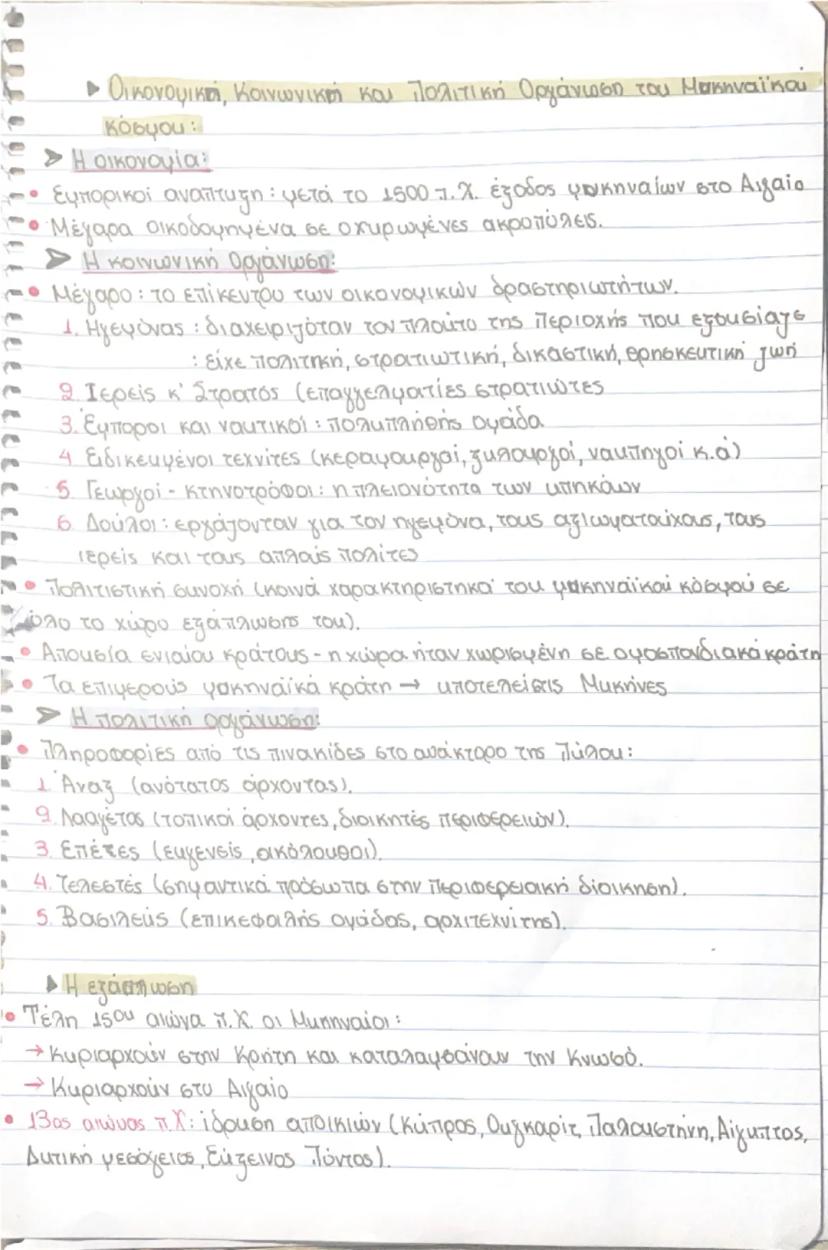 ▶ Οικονομική, Κοινωνική και Πολιτική Οργάνωση του Μυκηναϊκού
κόσμου:
➤ Η οικονομία:
• Εμπορικοί αναπτυξη: μετά το 1500 π.Χ. έξοδος μυκηναίων στο Αιγαίο
• Μέγαρα οικοδομημένα σε οχυρωμένες ακροπόλεις.
➤ Η κοινωνική Οργάνωση:
• Μέγαρο: το επίκεντρο των οικονομικών δραστηριωτήτων.
1. Ηγεμόνας: διαχειριζόταν τον πλούτο της περιοχής που εξουσίαζε
: είχε πολιτηκή, στρατιωτική, δικαστική, θρησκευτική ζωή
2. Ιερείς κ' Στρατός (επαγγελματίες στρατιώτες
3. Έμποροι και ναυτικοί: πολυπληθής ομάδα
4 Ειδικευμένοι τεχνίτες (κεραμουργοί, ξυλουργοί, ναυπηγοί κ.α)
5. Γεωργοί - κτηνοτρόφοι: η πλειονότητα των υπηκόων
6. Δούλοι: εργάζονταν για τον ηγεμόνα, τους αξιωματούχους, τους
ιερείς και τους απλούς πολίτες
• Πολιτιστική συνοχή (κοινά χαρακτηριστηκά του μυκηναϊκού κόσμου σε
όλο το χώρο εξάπλωσης του).
• Απουσία ενιαίου κράτους - η χώρα ήταν χωρισμένη σε ομοσπονδιακά κράτη
• Τα επιμερούς μυκηναϊκά κράτη → υποτελείς στις Μυκήνες
➤ Η πολιτική οργάνωση:
• Πληροφορίες από τις πινακίδες στο ανάκτορο της Πύλου:
1. Άναξ (ανότατος άρχοντας).
2. Λααγέτας (τοπικοί άρχοντες, διοικητές περιφερειών).
3. Επέτες (ευγενείς, ακόλουθοι).
4. Τελεστές (σημαντικά πρόσωπα στην περιφερειακή διοίκηση).
5. Βασιλεύς (επικεφαλής ομάδας, αρχιτεχνίτης).
▶ Η εξάπλωση
• Τέλη 15ου αιώνα π.Χ. οι Μυκηναίοι:
→ Κυριαρχούν στην Κρήτη και καταλαμβάνουν την Κνωσό.
→ Κυριαρχούν στο Αιγαίο
• 13ος αιώνας π.Χ: ίδρυση αποικιών (Κύπρος, Ουγκαρίτ, Παλαιστήνη, Αίγυπτος,
Δυτική μεσόγειος, Εύξεινος Πόντος).